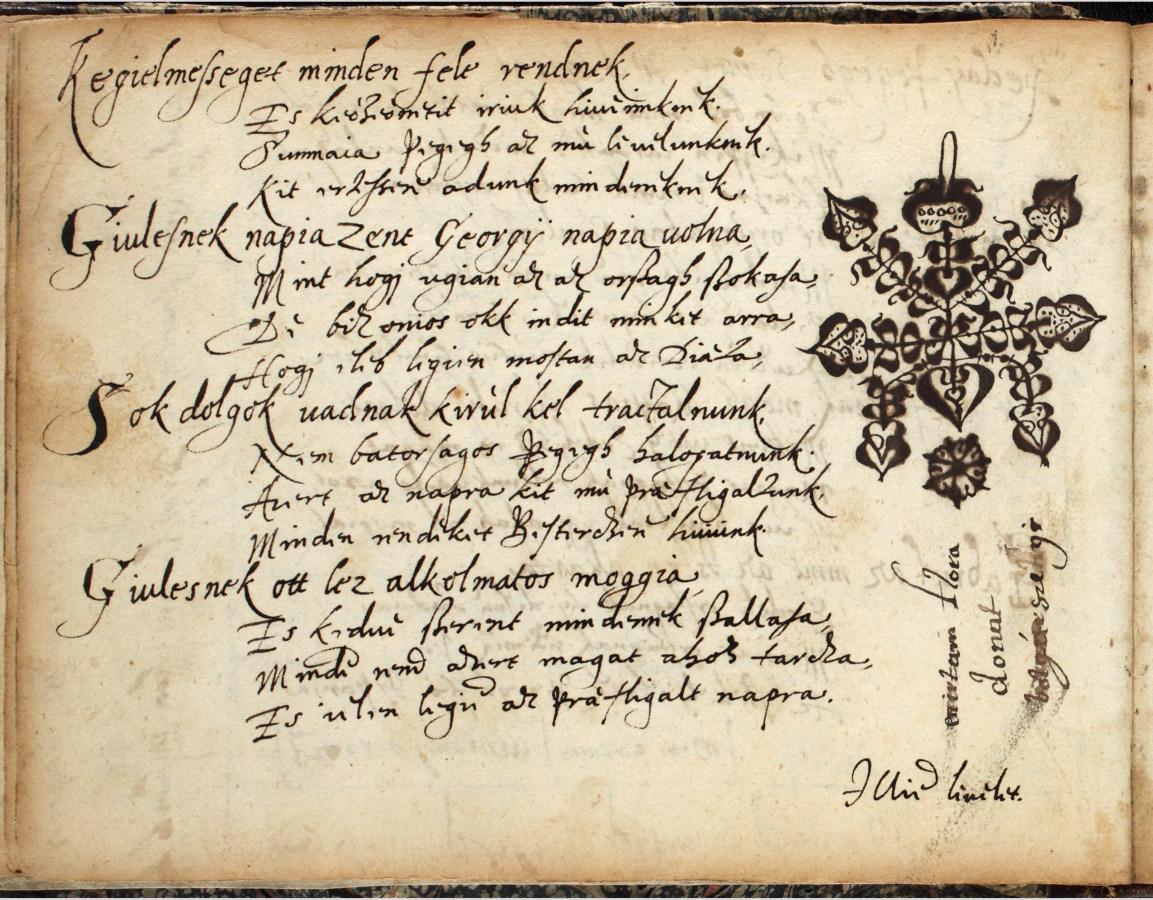 Kegielmesseget minden fele rendnek,
Es keözeontit iriuk hiueinknek.
Summaia Pegigh az mü leuelunknek.
Kit ertessen adunk mindeneknek.
Giulesnek napia Zent Georgÿ napia uolna,
Mint hogj ugian az az orßagh ßokasa,
De bizonios okk indit minket arra,
Hogj eleb legien mostan az Diæta,
Sok dolgok uadnak kirül kel tractalnunk,
Nem batorsagos Pegigh halogatnunk.
Azert az napra kit mü præfligaltunk,
Minden rendeket Bisterczen hiuunk.
Giulesnek ott lez alkolmatos moggia,
Es kedue ßerent mindennek ßallasa,
Minde rend azert magat ahoz tarcza,
Es ülen legie az præfligalt napra.
Flora
donat
leuelet.